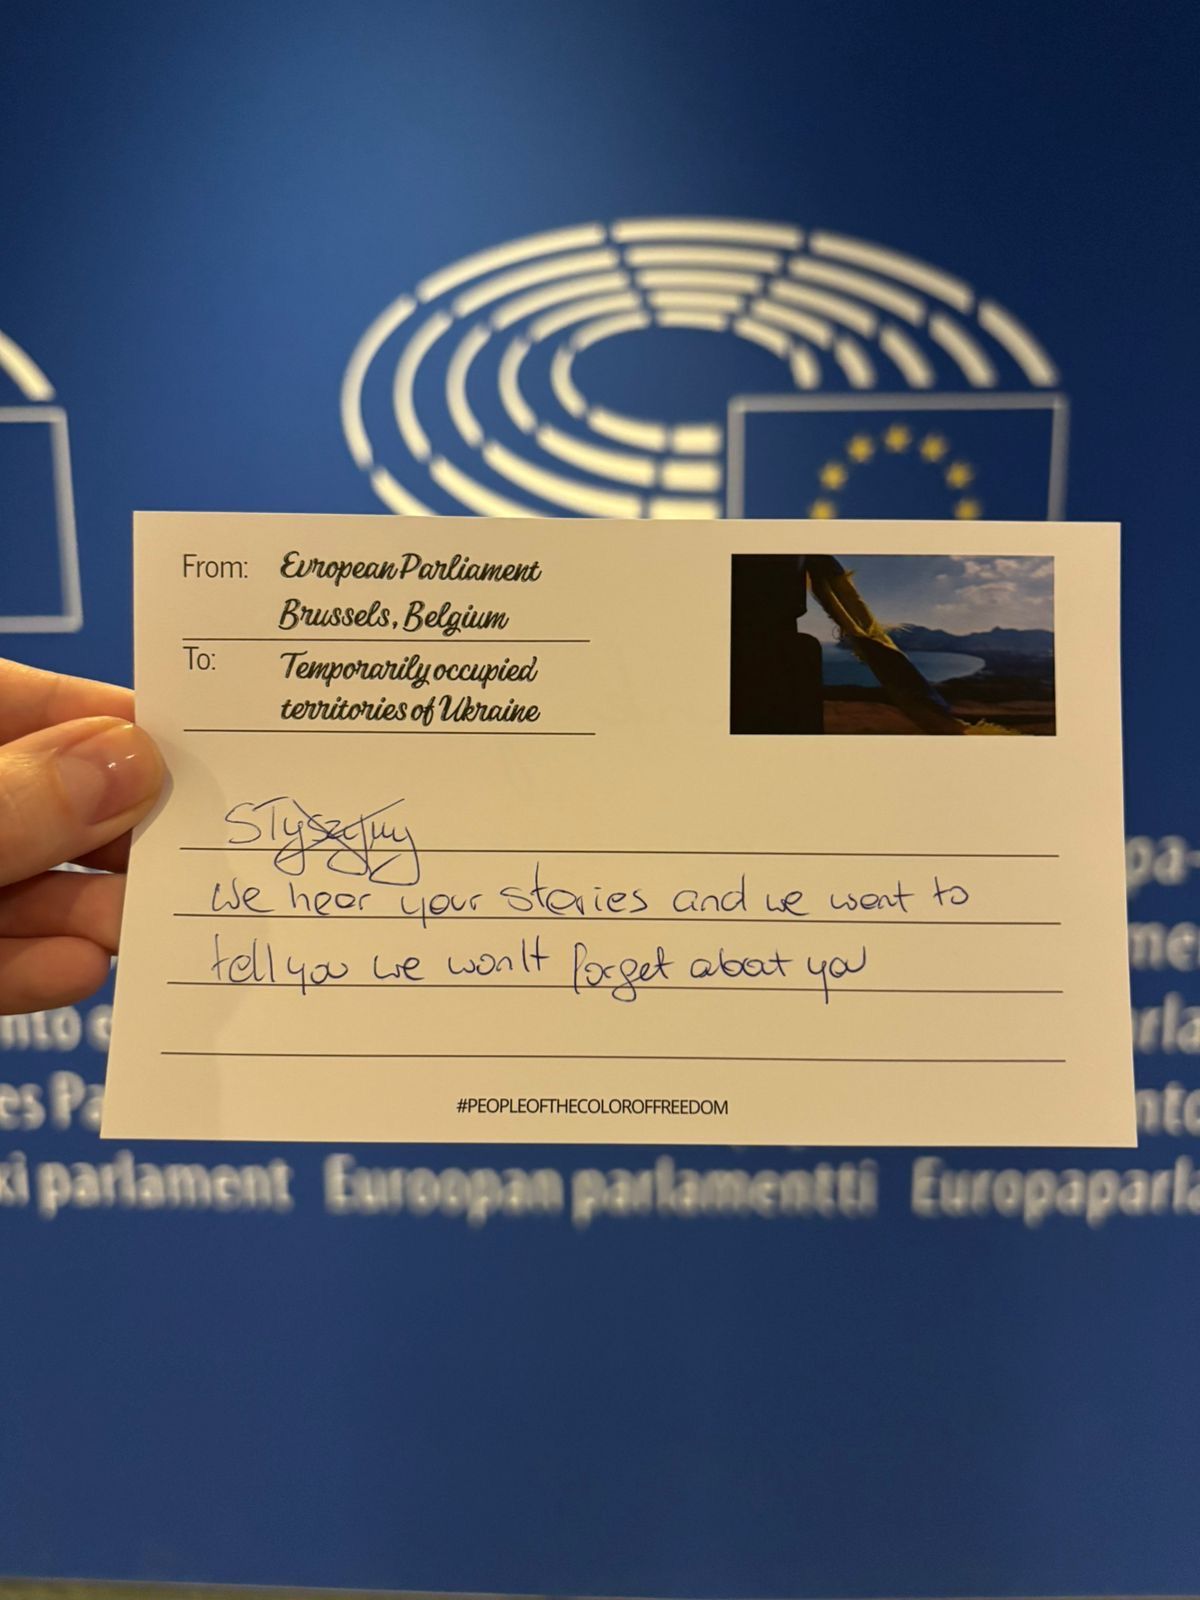 From: European Parliament
Brussels, Belgium
To: Temporarily occupied
territories of Ukraine
We hear your stories and we want to
tell you we won't forget about you
#PEOPLEOFTHECOLOROFFREEDOM
parlament Euroopan parlamentti